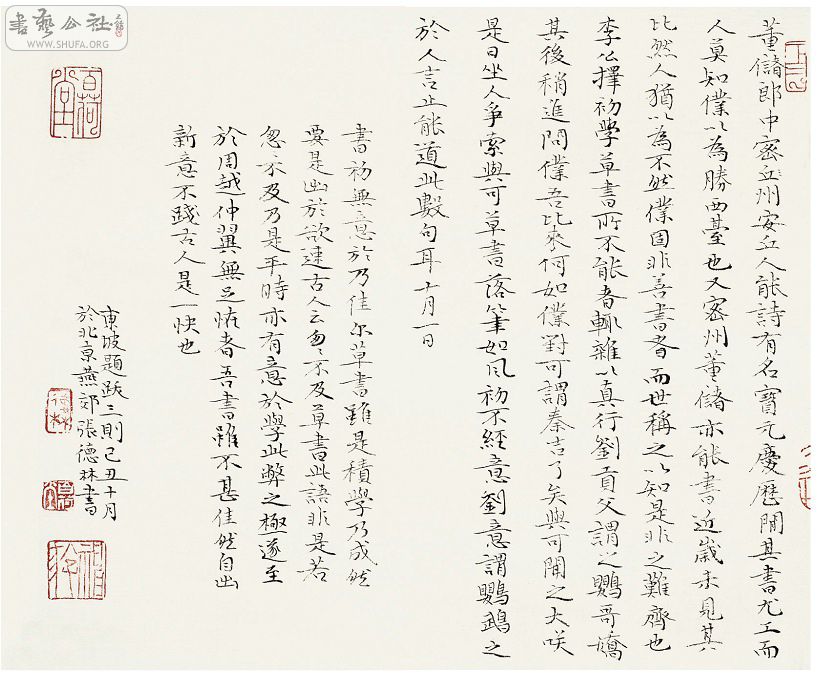 董儲郎中密丘州安丘人能詩有名寶元慶歷間其書尤工而
人莫知僕以為勝西臺也又密州董儲亦能書近歲未見其
比然人猶以為不然僕固非善書者而世稱之以知是非之難齊也
李公擇初學草書所不能者輒雜以真行劉貢父謂之鸚哥嬌
其後稍進問僕吾比來何如僕對可謂秦吉了矣與可聞之大咲
是日坐人爭索與可草書落筆如風初不經意劉意謂鸚鵡之
於人言止能道此數句耳十月一日
書初無意於乃佳尔草書雖是積學乃成然
要是出於欲速古人云匆匆不及草書此語非是若
忽不及乃是平時亦有意於學此弊之極遂至
於周越仲翼無足恠者吾書雖不甚佳然自出
新意不踐古人是一快也
東坡題跋三則己丑十月
於北京燕郊張德林書
百荷堂
德林
書藝公社
WWW.SHUFA.ORG